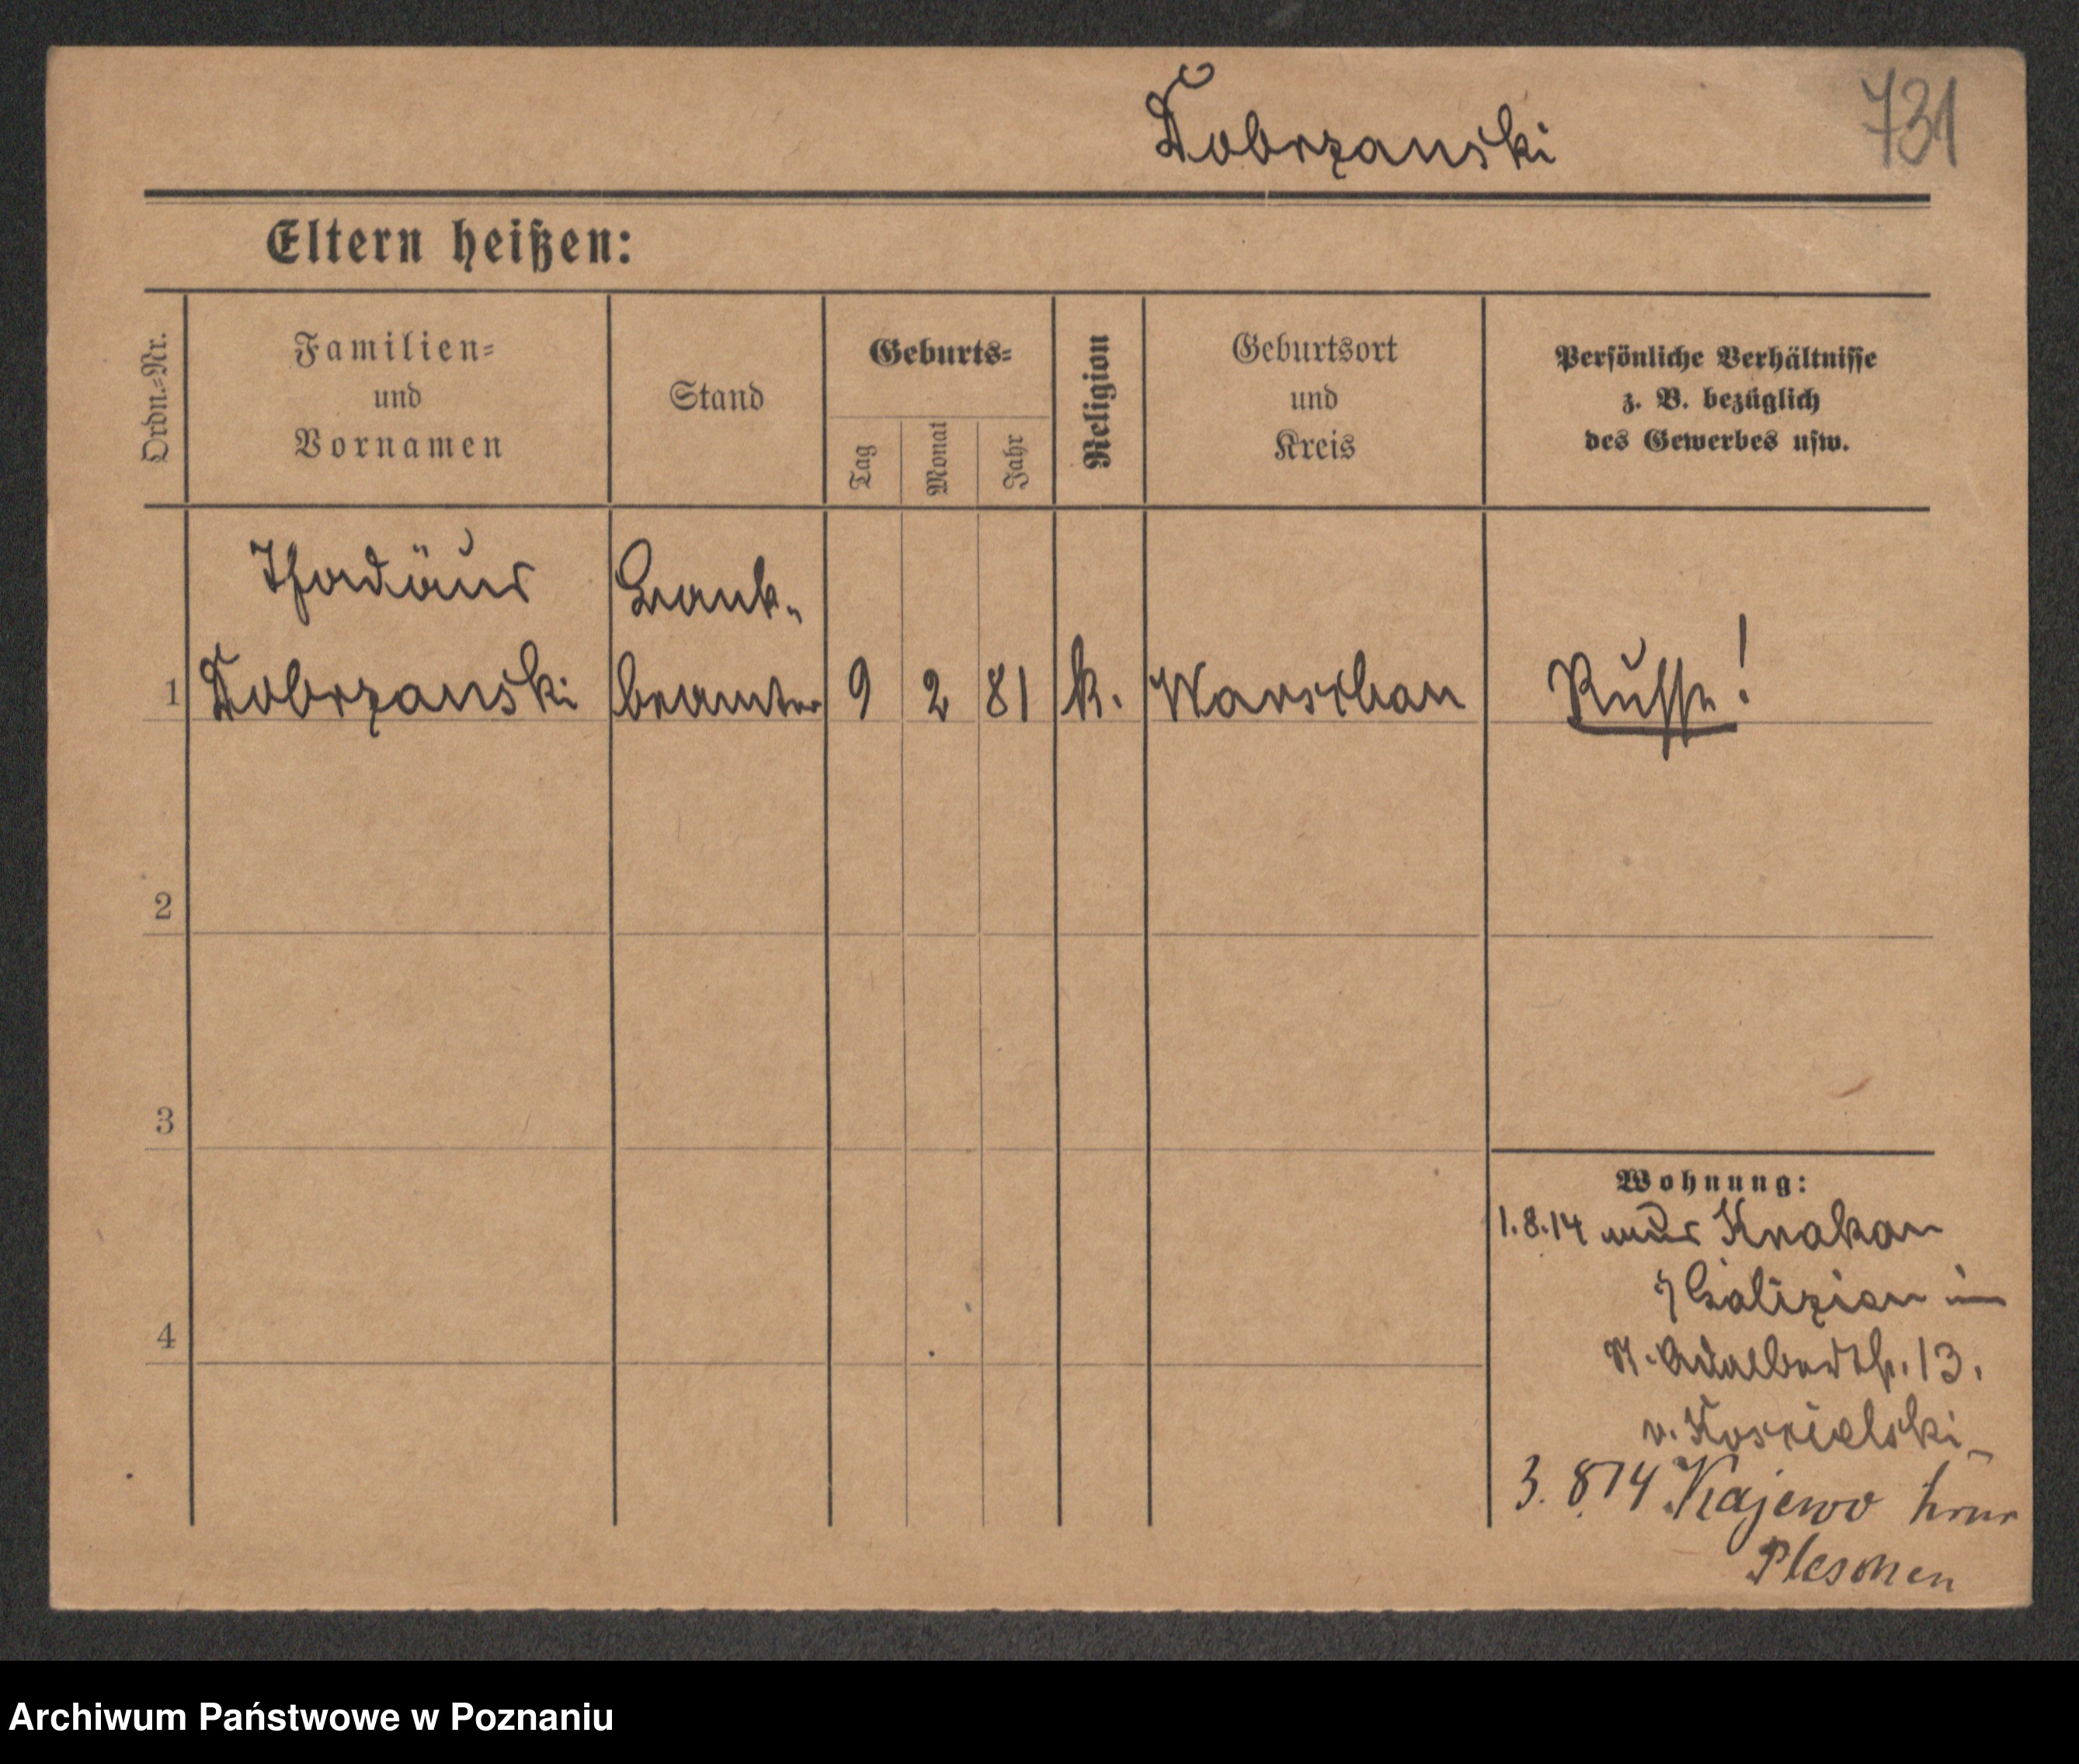 Dobrzanski
731
Eltern heißen:
Ordn.-Nr.
Familien-
und
Vornamen
Stand
Geburts-
Tag
Monat
Jahr
Religion
Geburtsort
und
Kreis
Persönliche Verhältnisse
z. B. bezüglich
des Gewerbes usw.
Thadäus Bank-
1 Dobrzanski beamter 9 2 81 k. Warschau Russe!
2
3
4
Wohnung:
1.8.14 aus Krakau
Galizien in
St. Adalbertstr. 13.
v. Koscielski
3.8 14 Kajewo
Pleschen
Archiwum Państwowe w Poznaniu